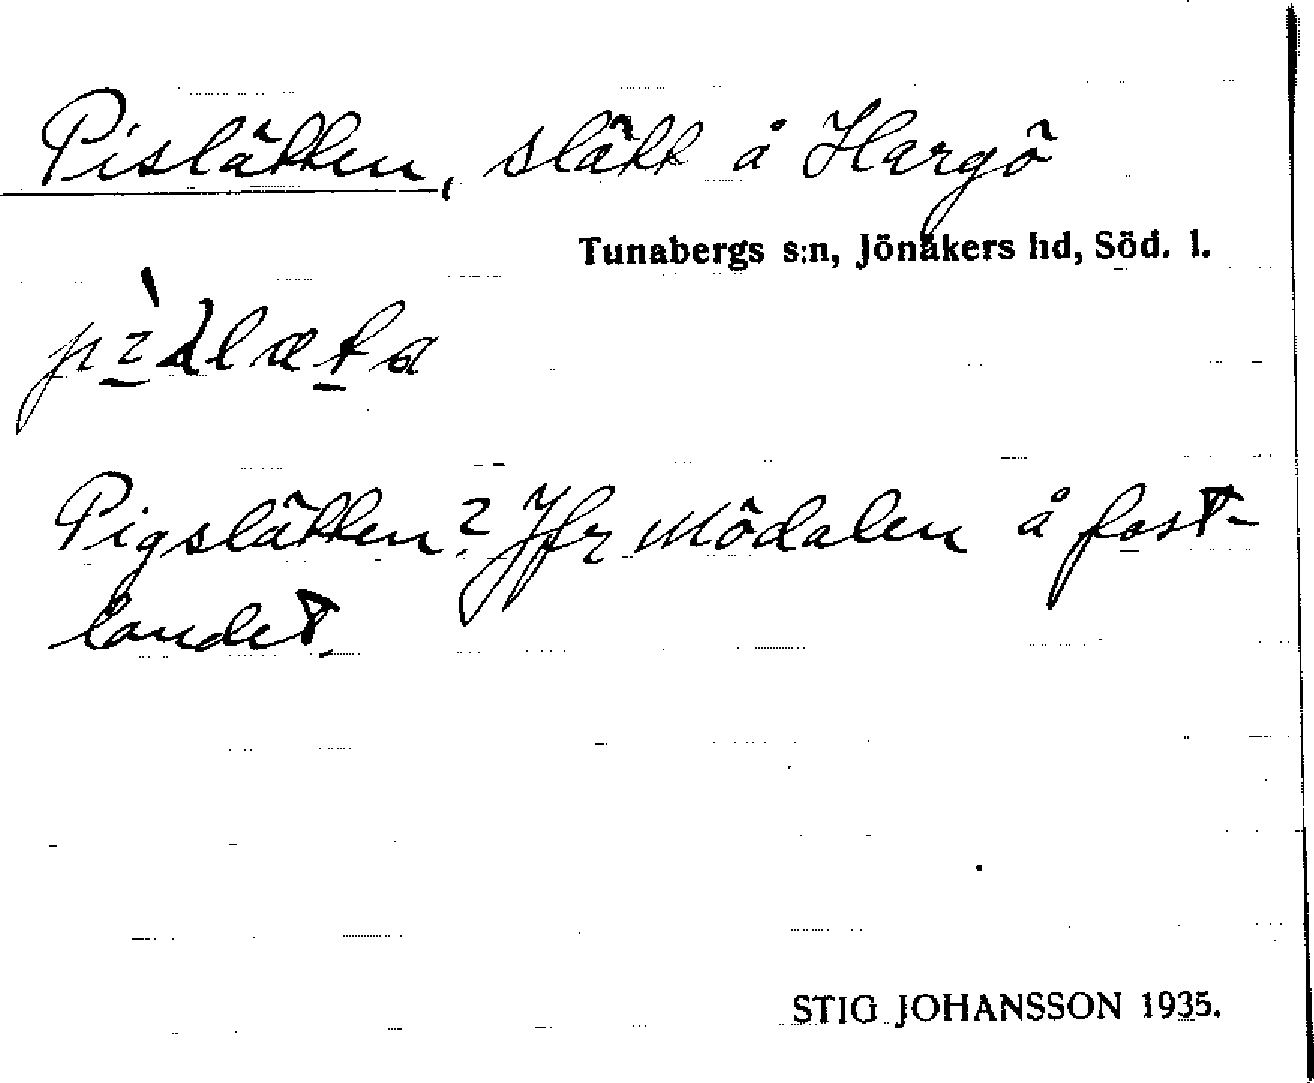 Pislätten, slätt å Hargö
Tunabergs s:n, Jönåkers hd, Söd. l.
Pigslätten? Jfr Mödalen å fast-
landet.
STIG JOHANSSON 1935.